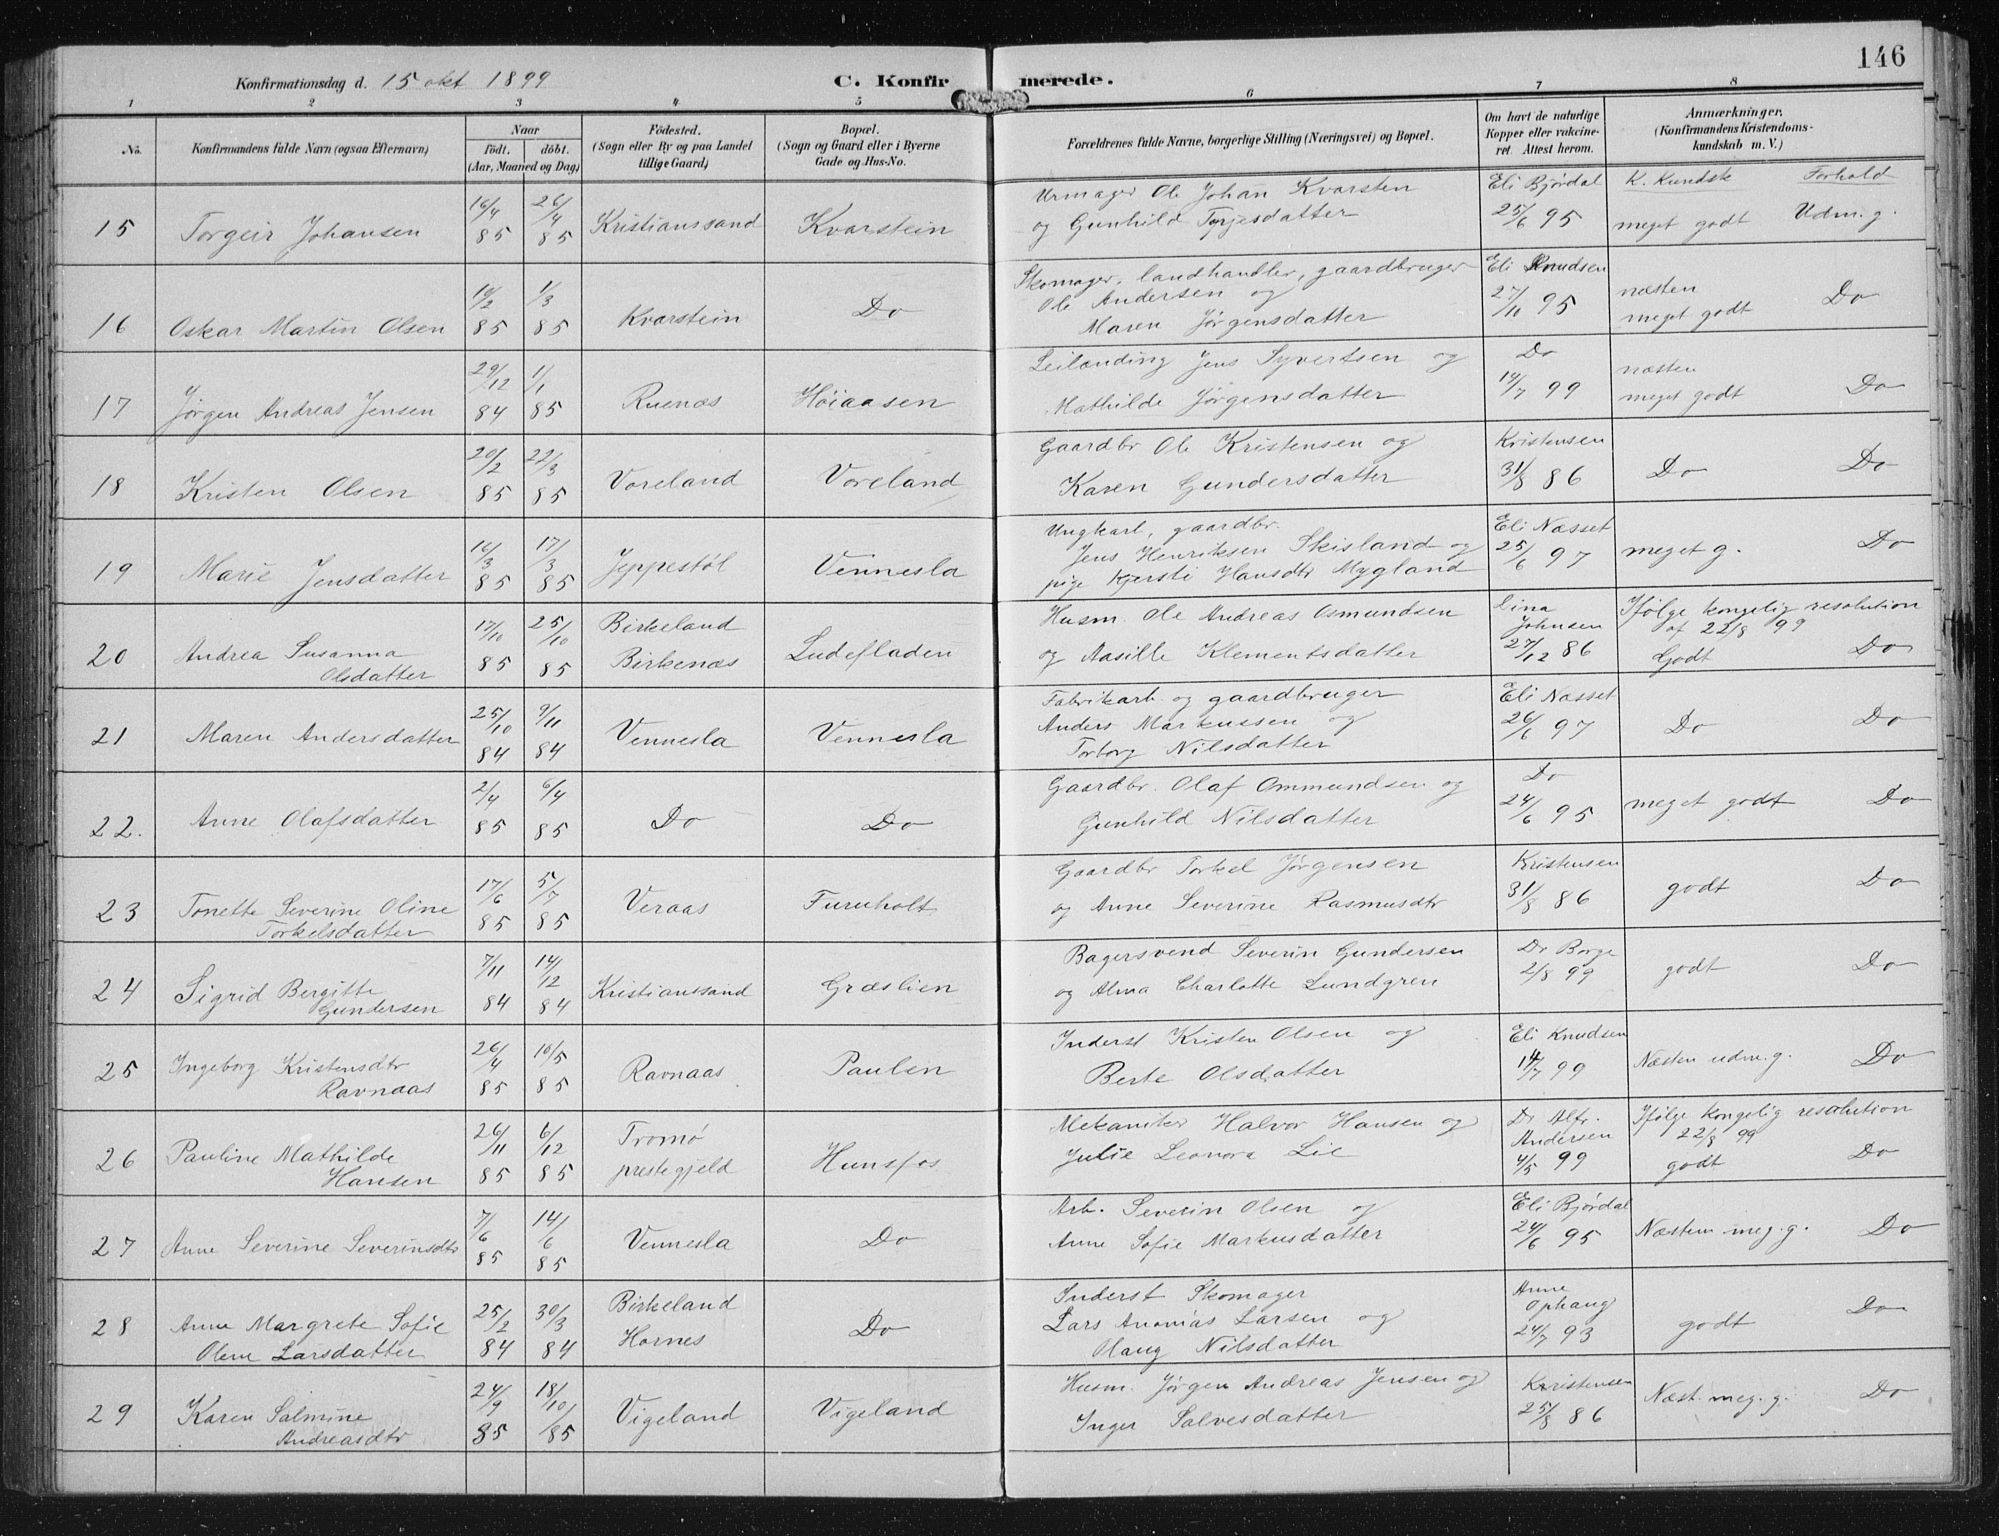 146
Konfirmationsdag d. 15 okt 1899 C. Konfirmerede.
1 2 3 4 5 6 7 8
No. Konfirmandens fulde Navn (ogsaa Efternavn) Naar födt. döbt. (Aar, Maaned og Dag) Födested. (Sogn eller By og paa Landet tillige Gaard) Bopæl. (Sogn og Gaard eller i Byerne Gade og Hus-No. Forældrenes fulde Navne, borgerlige Stilling (Næringsvei) og Bopæl. Om havt de naturlige Kopper eller vakcineret. Attest herom. Anmærkninger. (Konfirmandens Kristendomskundskab m. V.)
K. Kundsk Forhold
15 Torgeir Johansen 16/4 85 26/4 85 Kristianssand Kvarstein Urmager Ole Johan Kvarsten og Gunhild Terjesdatter Eli Bjørdal 25/6 95 meget godt Udm. g.
16 Oskar Martin Olsen 1/3 85 Kvarstein Do Skomager, landhandler, gaardbruger Ole Andersen og Maren Jørgensdatter Eli Knudsen 27/11 95 næsten meget godt Do
17 Jørgen Andreas Jensen 29/12 84 1/1 85 Ruenæs Høiaasen Leilænding Jens Syvertsen og Mathilde Jørgensdatter Do 14/7 99 næsten meget godt Do
18 Kristen Olsen 20/2 85 22/3 85 Voreland Voreland Gaardbr Ole Kristensen og Karen Gundersdatter Kristensen 31/8 86 Do Do
19 Marie Jensdatter 16/3 85 17/3 85 Jeppestøl Vennesla Ungkarl, gaardbr. Jens Henriksen Skisland og pige Kjersti Hansdtr Mygland Eli Næsset 25/6 97 meget g. Do
20 Andrea Susanna Olsdatter 17/10 85 25/10 85 Birkeland Birkenæs Ludefladen Husm. Ole Andreas Osmundsen og Aasille Klementsdatter Lina Johnsen 27/12 86 Ifølge kongelig resolution af 22/8 99 Godt Do
21 Maren Andersdatter 25/10 84 9/11 84 Vennesla Vennesla Fabrikarb. og gaardbruger Anders Markussen og Torborg Nilsdatter Eli Næsset 26/6 97 Do Do
22. Anne Olafsdatter 2/4 85 6/4 85 Do Do Gaardbr. Olaf Ommundsen og Gunhild Nilsdatter Do 24/6 95 meget godt Do
23 Tonette Severine Oline Torkelsdatter 17/6 85 5/7 85 Veraas Furuholt Gaardbr Torkel Jørgensen og Anne Severine Rasmusdtr Kristensen 31/8 86 godt Do
24 Sigrid Bergitte Gundersen 7/11 84 14/12 84 Kristianssand Græslien Bagersvend Severin Gundersen og Alma Charlotte Lundgren Dr Borge 2/8 99 godt Do
25 Ingeborg Kristensdtr Ravnaas 26/4 85 10/5 85 Ravnaas Paulen Inderst Kristen Olsen og Berte Olsdatter Eli Knudsen 14/7 99 Næsten udm. g. Do
26 Pauline Mathilde Hansen 26/11 85 6/12 85 Tromø prestegjeld Hunsfos Mekaniker Halvor Hansen og Julie Leonora Lie Dr Alfr. Andersen 4/5 99 Ifølge kongelig resolution 22/8 99 godt Do
27 Anne Severine Severinsdtr 7/6 85 14/6 85 Vennesla Do Arb. Severin Olsen og Anne Sofie Markusdatter Eli Bjørdal 24/6 95 Næsten meg. g. Do
28 Anne Margrete Sofie Olene Larsdatter 25/2 84 30/3 84 Birkeland Hornes Do Inderst Skomager Lars Larsen og Olaug Nilsdatter Anne Ophaug 24/7 93 godt Do
29 Karen Salmine Andreasdtr 24/9 85 18/10 85 Vigeland Vigeland Husm. Jørgen Andreas Jensen og Inger Salvesdatter Kristensen 25/8 86 Næst. meg. g. Do